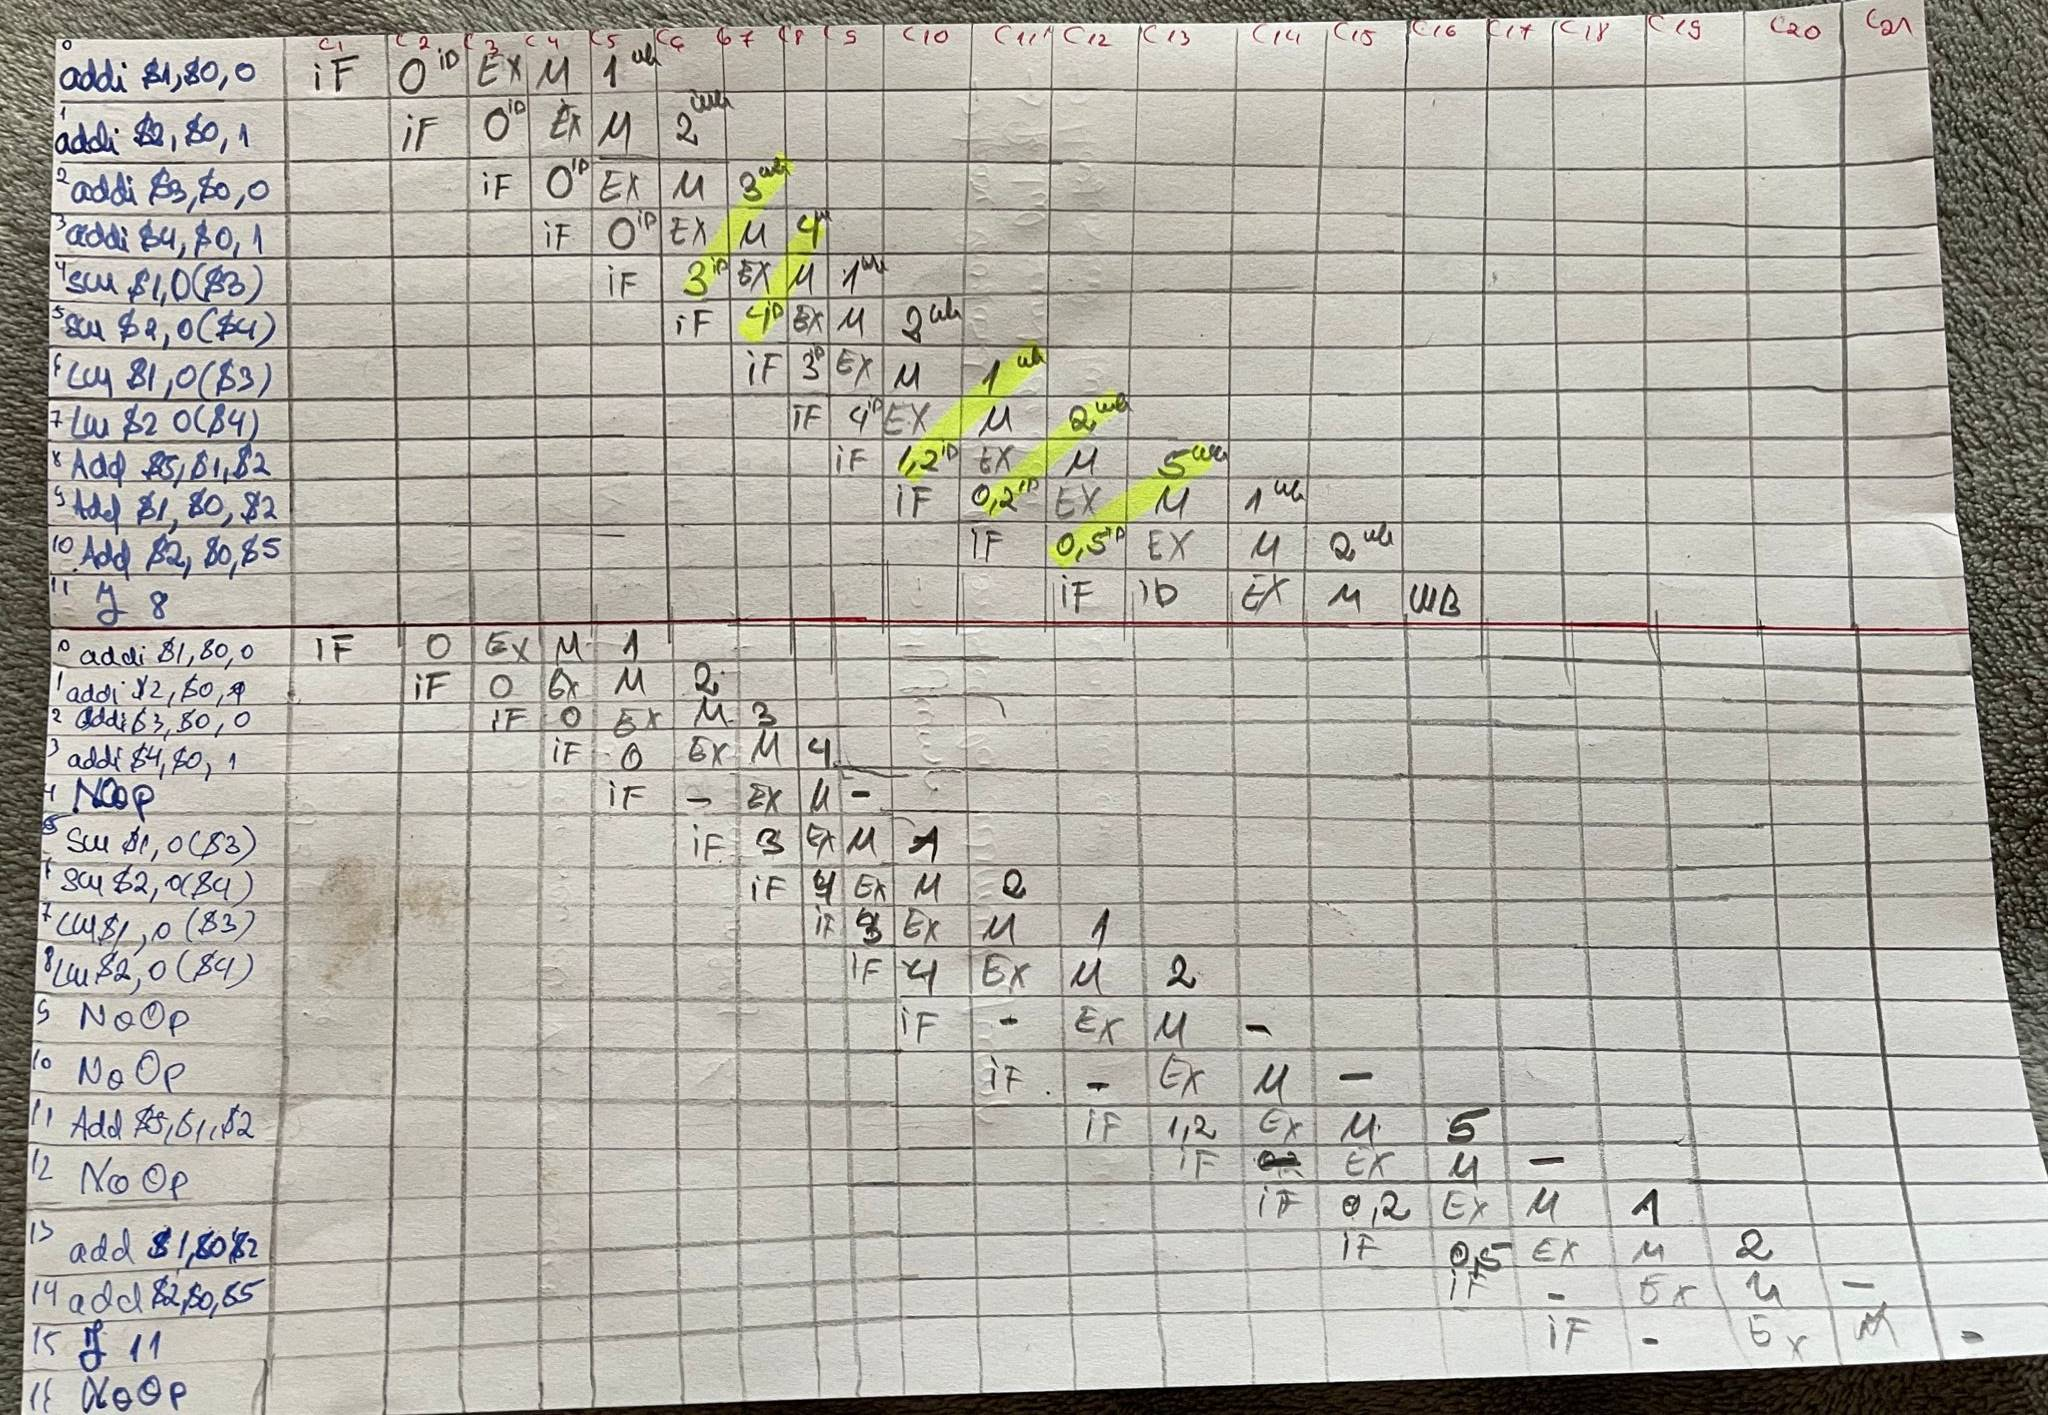 C1 C2 C3 C4 C5 C6 C7 C8 9 C10 C11 C12 C13 C14 C15 C16 C17 C18 C19 C20 C21
0 addi $1,$0,0 iF 0 iD EX M 1 wb
1 addi $2,$0,1 iF 0 iD EX M 2 wb
2 addi $3,$0,0 iF 0 iD EX M 3 wb
3 addi $4,$0,1 iF 0 iD EX M 4
4 sw $1,0($3) iF 3 iD EX M 1 wb
5 sw $2,0($4) iF 4 iD EX M 2 wb
6 Lw $1,0($3) iF 3 iD EX M 1 wb
7 Lw $2 0($4) iF 4 iD EX M 2 wb
8 Add $5,$1,$2 iF 1,2 iD EX M 5 wb
9 Add $1,$0,$2 iF 0,2 iD EX M 1 wb
10 Add $2,$0,$5 iF 0,5 iD EX M 2 wb
11 J 8 iF iD EX M WB
0 addi $1,$0,0 iF 0 EX M 1
1 addi $2,$0,1 iF 0 EX M 2
2 addi $3,$0,0 iF 0 EX M 3
3 addi $4,$0,1 iF 0 EX M 4
4 NOOp iF - EX M -
5 sw $1,0($3) iF 3 EX M 1
6 sw $2,0($4) iF 4 EX M 2
7 Lw $1,0($3) iF 3 EX M 1
8 Lw $2,0($4) iF 4 EX M 2
9 NoOp iF - EX M -
10 NoOp iF - EX M -
11 Add $5,$1,$2 iF 1,2 EX M 5
12 NoOp iF EX M -
iF 0,2 EX M 1
13 add $1,$0$2 iF 0,5 EX M 2
14 add $2,$0,$5 iF - EX M -
15 J 11 iF - EX M -
16 NoOp